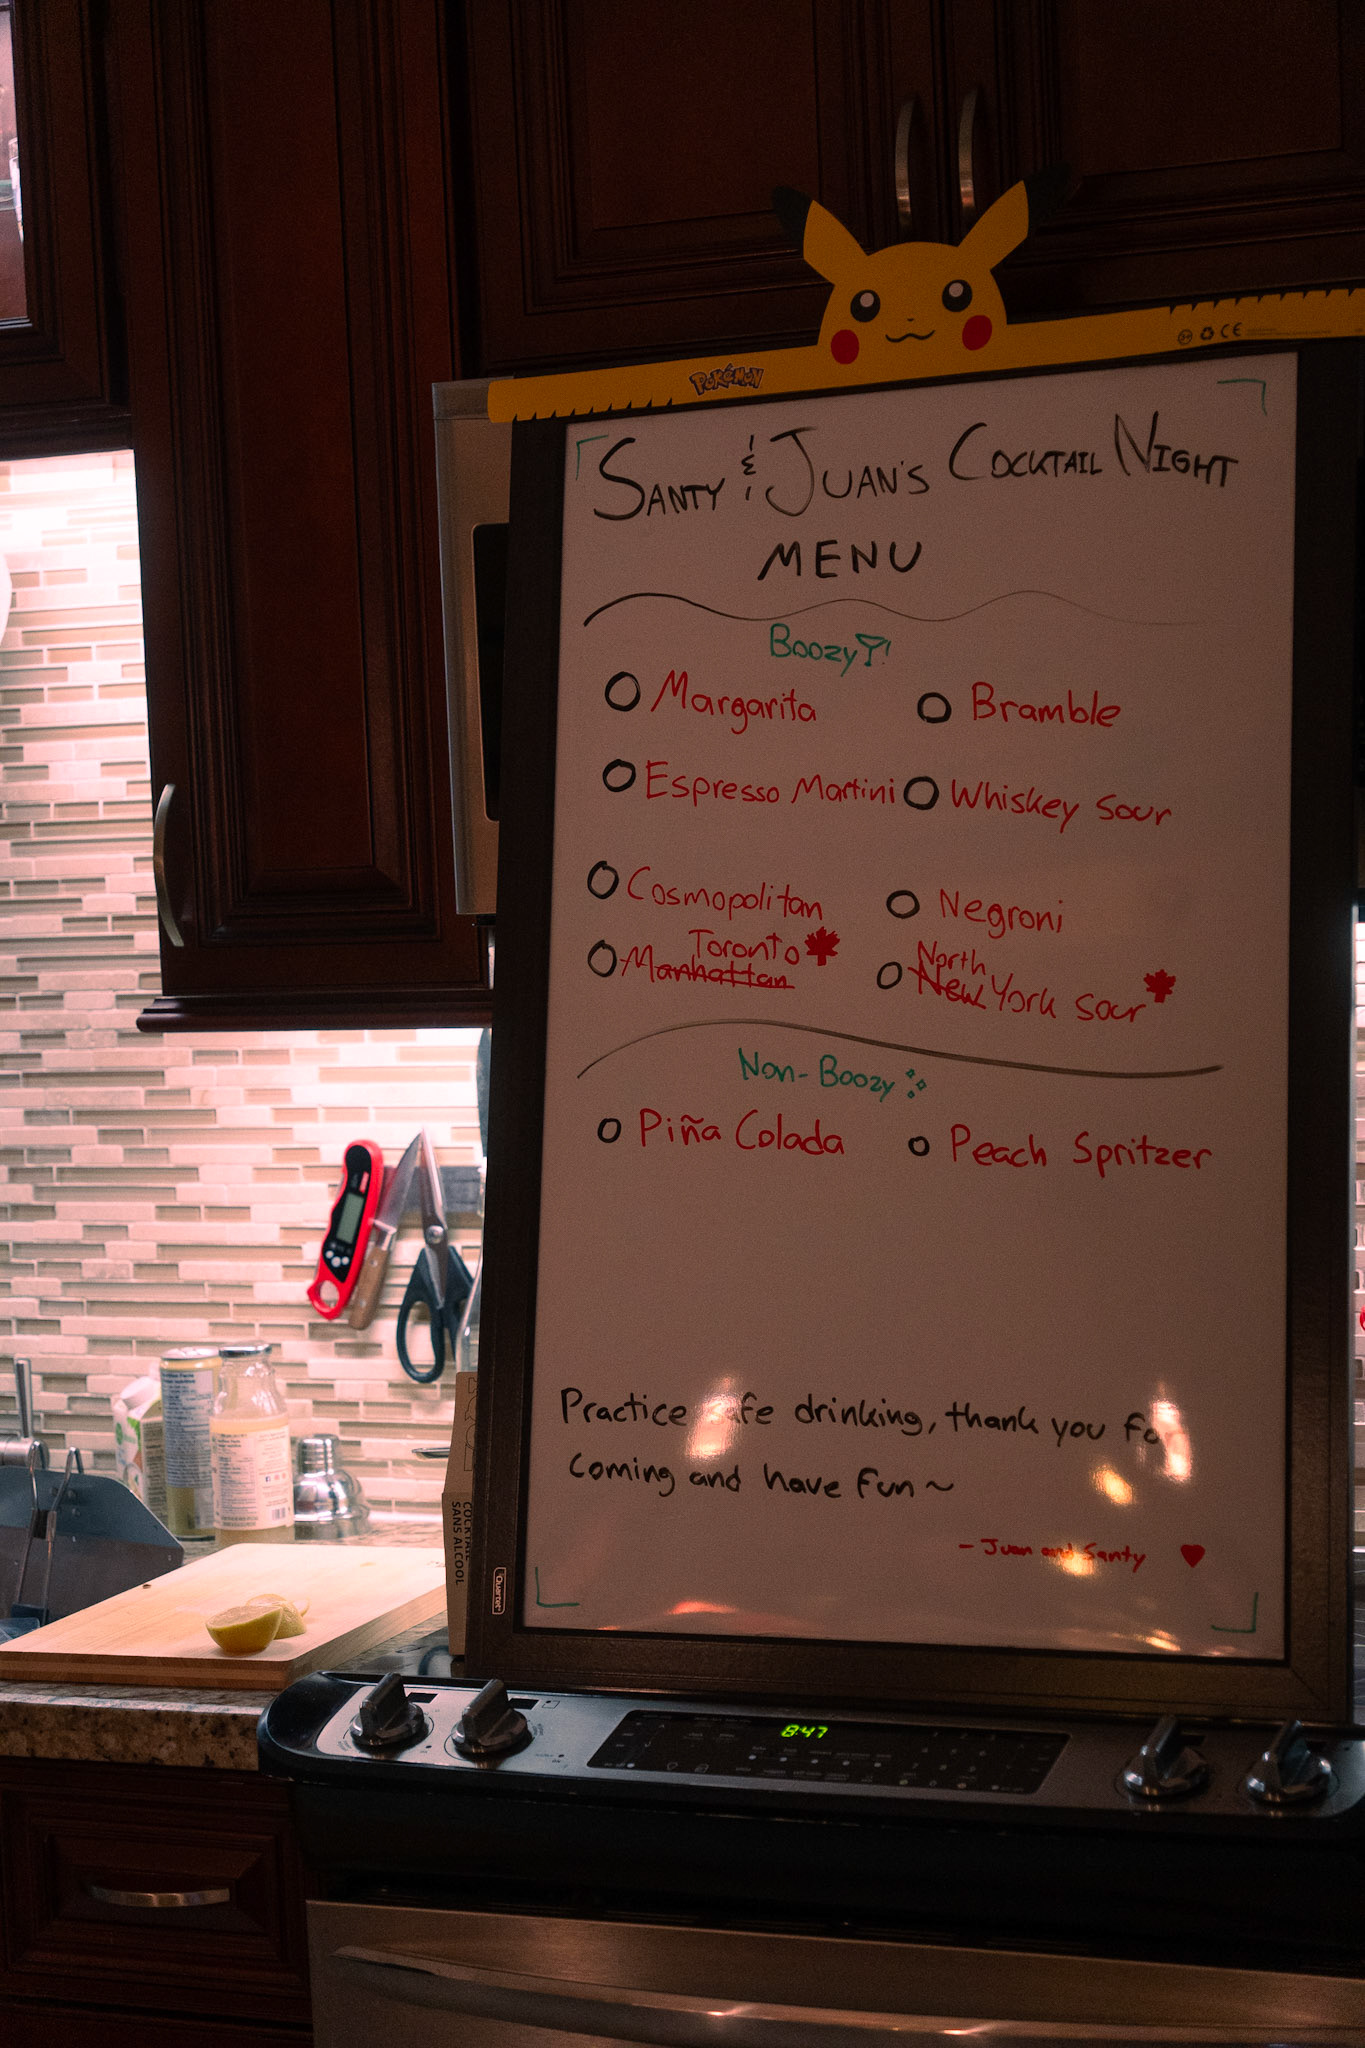 POKÉMON
CE
SANTY & JUAN'S COCKTAIL NIGHT
MENU
Boozy
Margarita
Bramble
Espresso Martini
Whiskey Sour
Cosmopolitan
Negroni
Toronto
Manhattan
North
New York Sour
Non-Boozy
Piña Colada
Peach Spritzer
Practice safe drinking, thank you for
coming and have fun ~
- Juan and Santy
COCKTAIL
SANS ALCOOL
Quartet
8:47